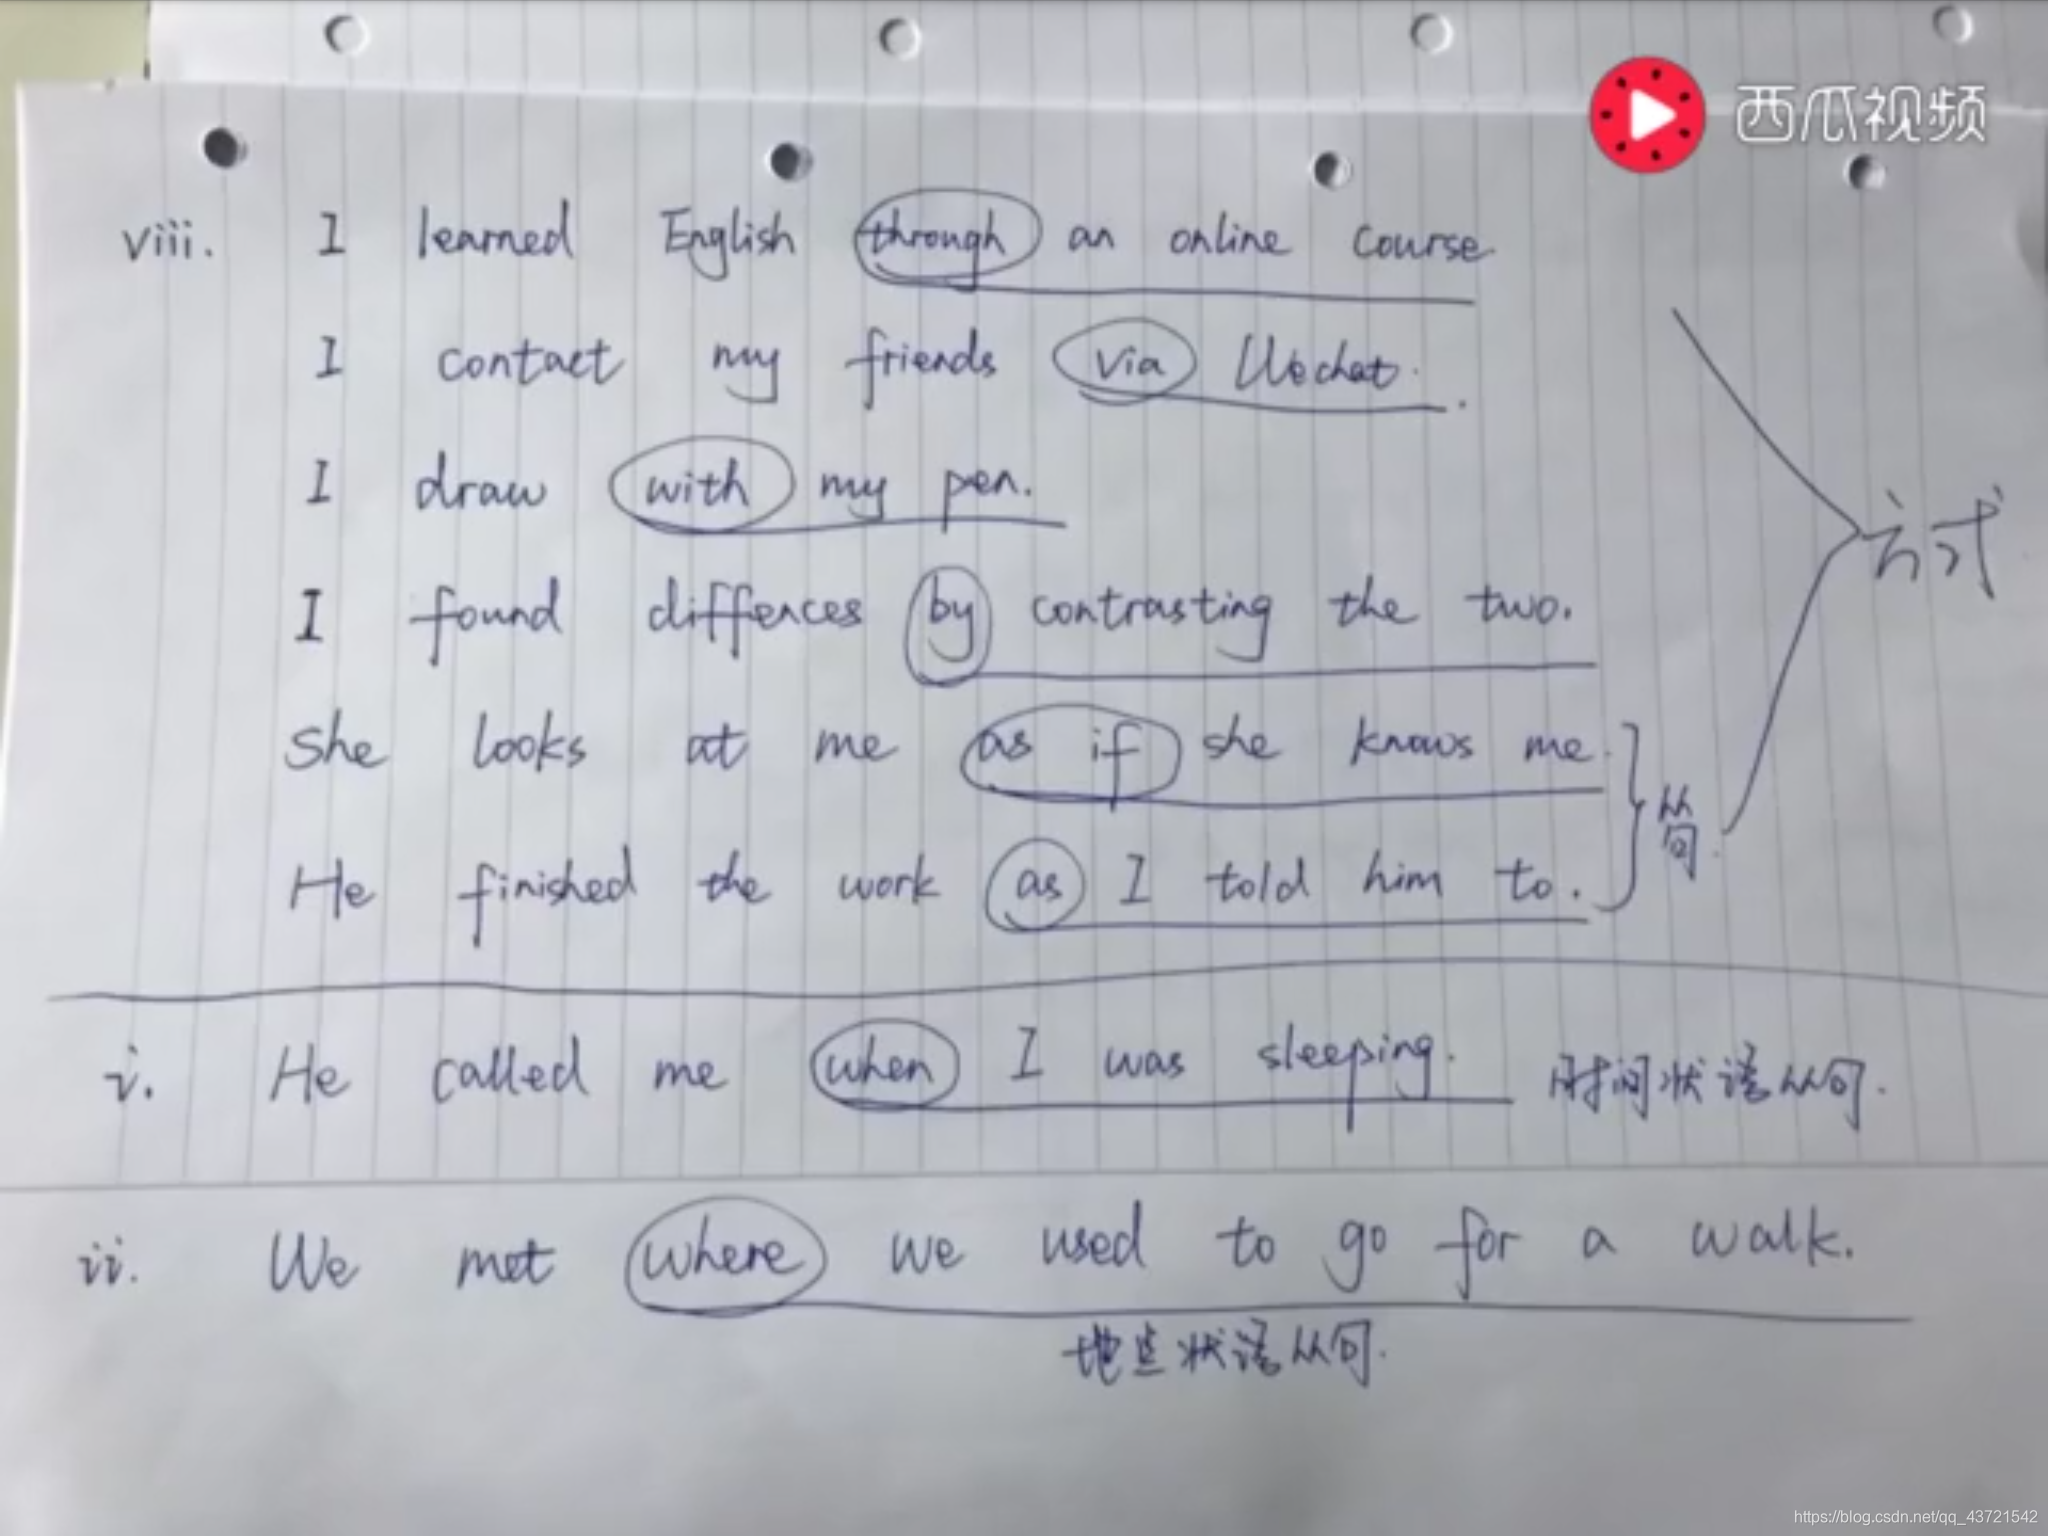 西瓜视频
viii. I learned English through an online course.
I contact my friends via Wechat.
I draw with my pen.
方式
I found diffences by contrasting the two.
She looks at me as if she knows me.
从句.
He finished the work as I told him to.
i. He called me when I was sleeping. 时间状语从句.
ii. We met where we used to go for a walk.
地点状语从句.
https://blog.csdn.net/qq_43721542